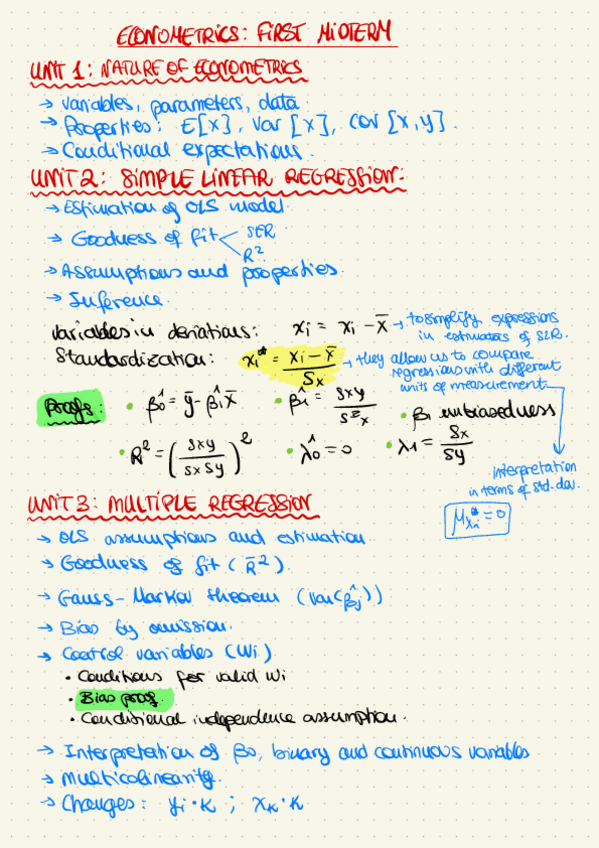 ECONOMETRICS: FIRST MIDTERM
UNIT 1: NATURE OF ECONOMETRICS
→ Variables, parameters, data
→ Properties: E[x], Var[x], Cov[x,y].
→ Conditional expectations.
UNIT 2: SIMPLE LINEAR REGRESSION:
→ Estimation of OLS model.
→ Goodness of fit < SER
R²
→ Assumptions and properties.
→ Inference.
Variables in deviations: xi = xi - x̄ → to simplify expressions
in estimators of SLR.
Standardization: xi* = (xi - x̄)/Sx → they allow us to compare
regressions with different
units of measurement
Proofs: • β̂0 = ȳ - β̂1x̄ • β̂1 = Sxy/S²x • β1 unbiasedness
• R² = (Sxy/SxSy)² • λ̂0 = 0 • λ1 = Sx/Sy
Interpretation
in terms of std. dev.
μxi* = 0
UNIT 3: MULTIPLE REGRESSION
→ OLS assumptions and estimation.
→ Goodness of fit (R̄²).
→ Gauss-Markov theorem (Var(β̂j))
→ Bias by omission.
→ Control variables (Wi)
• Conditions for valid Wi
• Bias proof.
• Conditional independence assumption.
→ Interpretation of β0, binary and continuous variables
→ Multicolinearity.
→ Changes: yi·K ; xK·K